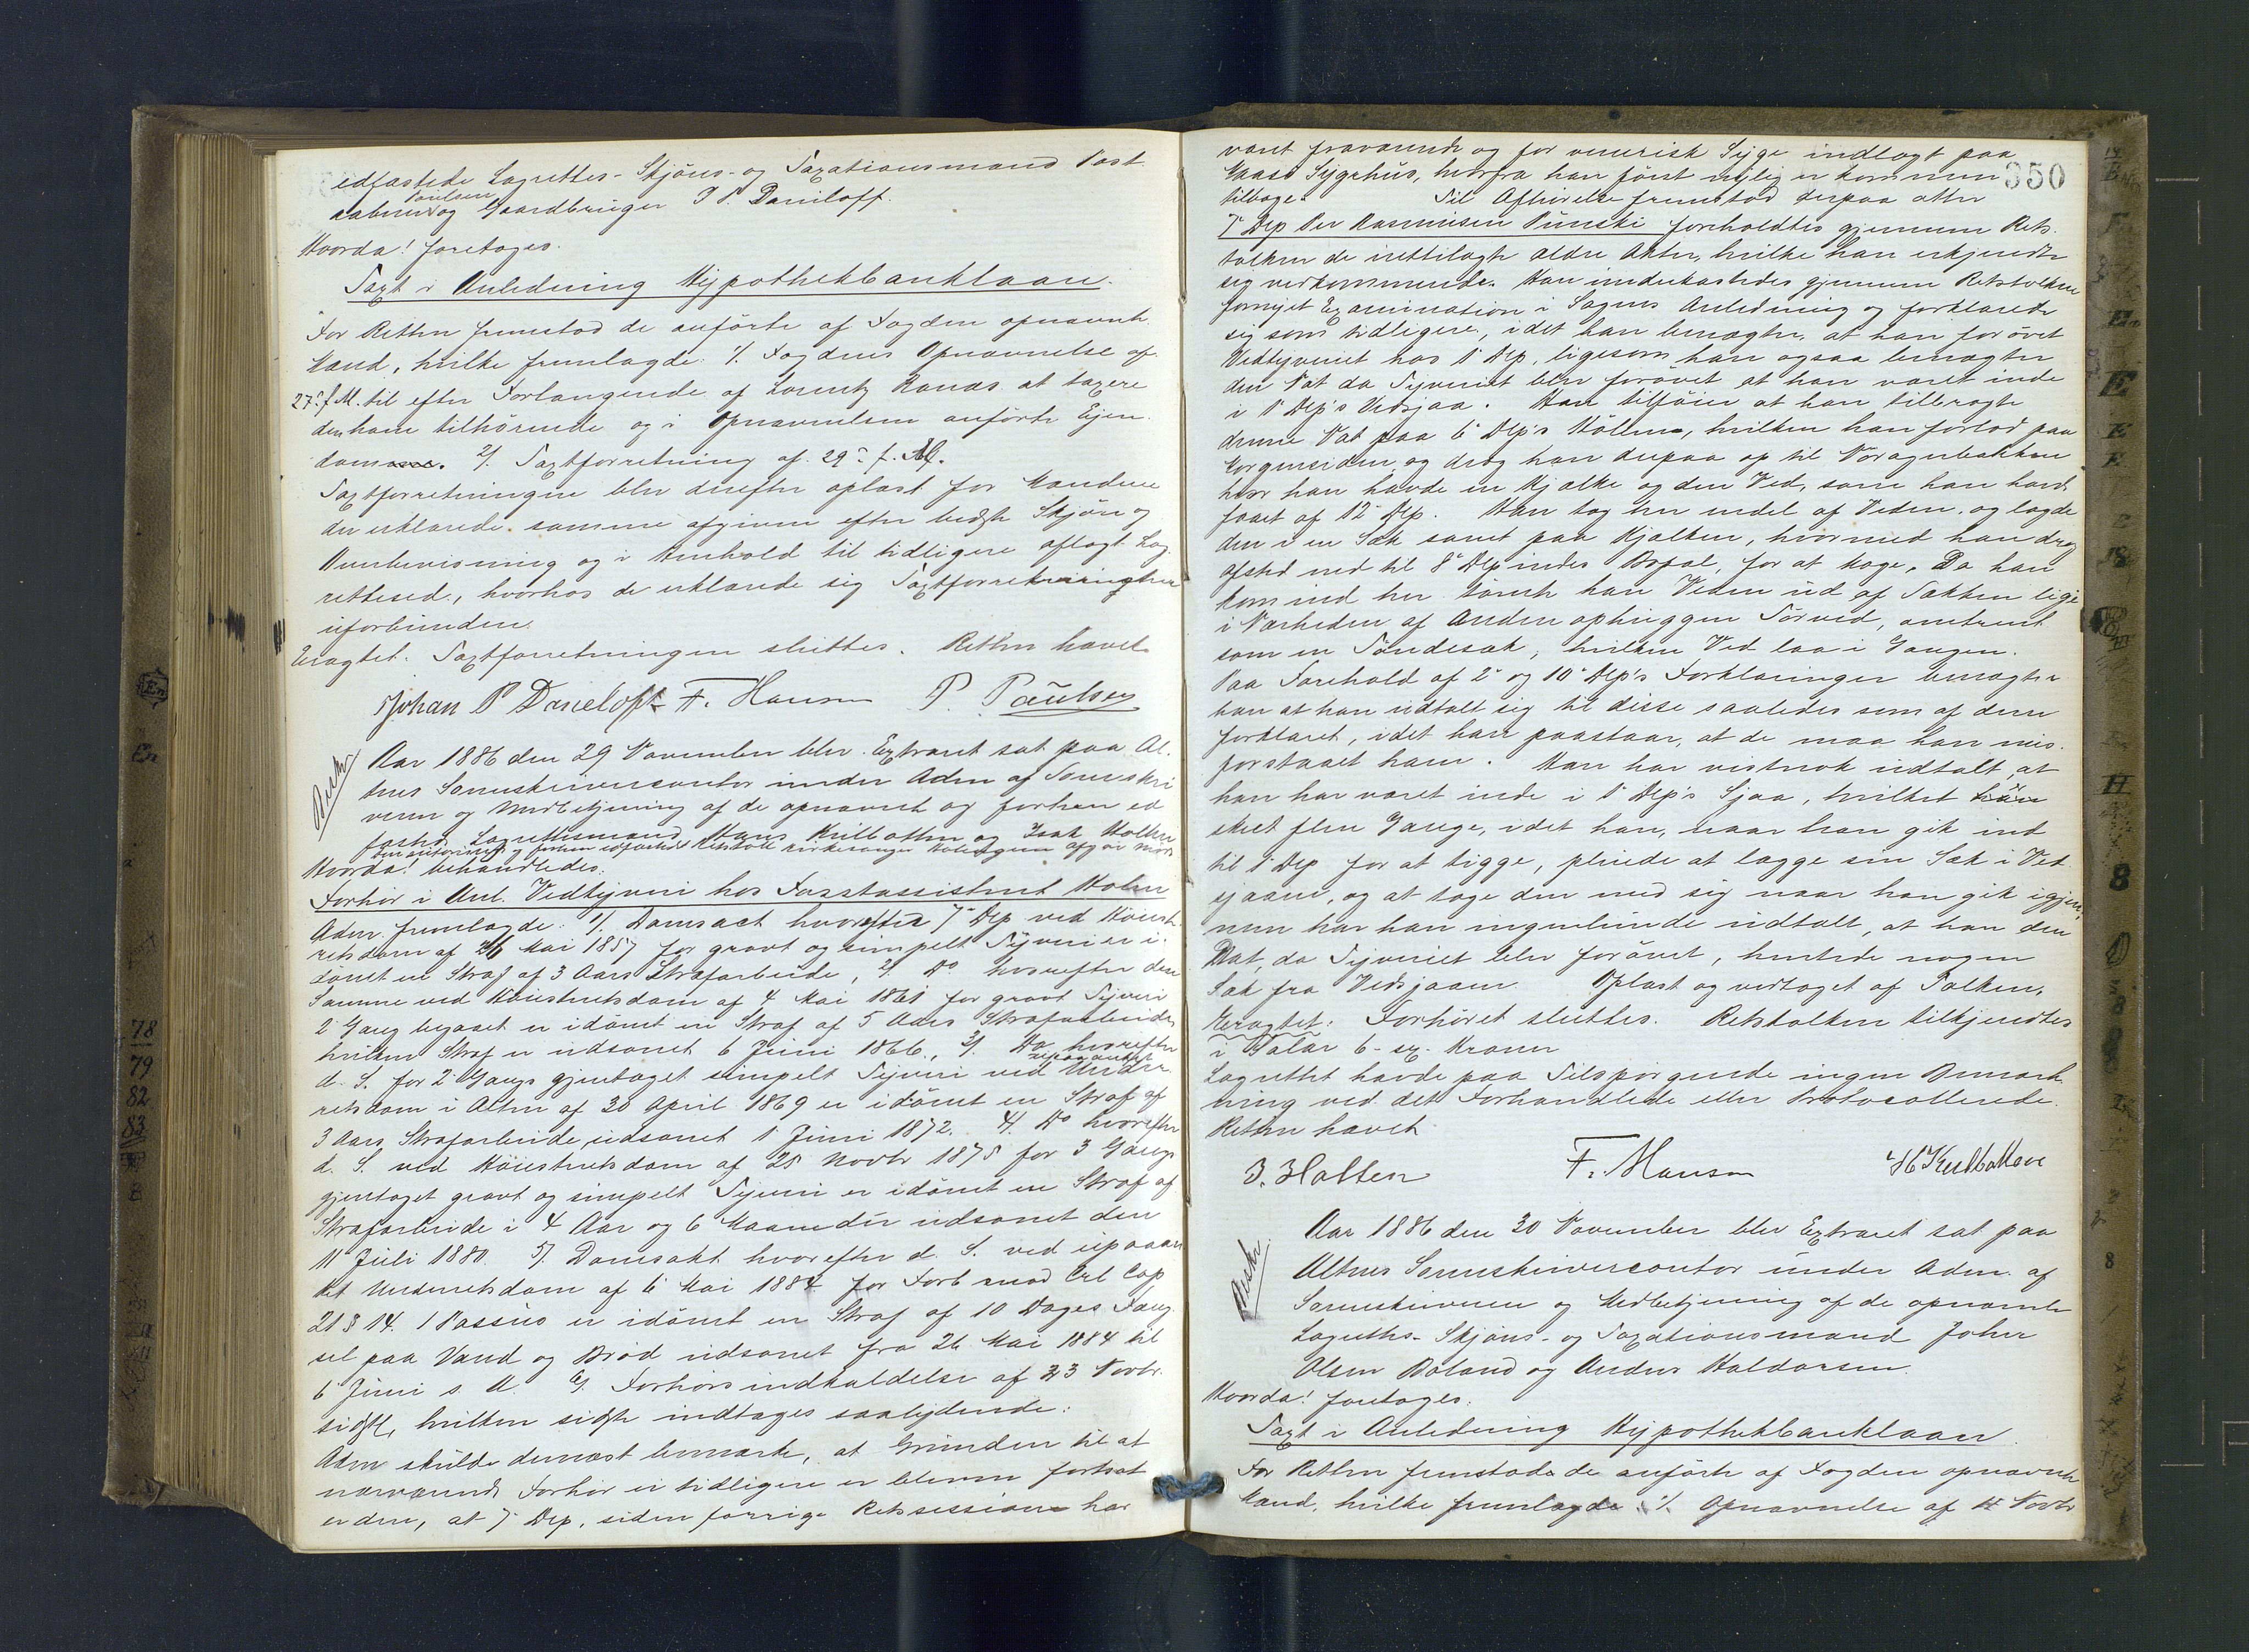 edfæstede Lagrettes- Skjöns- og Taxationsmænd Post-
aabner Paulsen og Gaardbruger J P. Daniloff.
Hvorda! foretoges.
Taxt i Anledning Hypothekbanklaan.
For Retten fremstod de anförte af Fogden opnævnte
Mænd, hvilke fremlagde: 1/. Fogdens Opnævnelse af
27de f. M. til efter Forlangende af Lorentz Ranas at taxere
den ham tilhörende og i Opnævnelsen anförte Ejen-
dom. 2/. Taxtforretning af 29de f. M.
Taxtforretningen blev derefter oplæst for Mændene
der erklærede samme afgiven efter bedste Skjön og
Overbevisning og i Henhold til tidligere aflagt Lag-
rettesed, hvorhos de erklærede sig Taxtforretningen
uforbunden.
Eragtet: Taxtforretningen sluttes. Retten hævet.
Johan P Danieloff F. Hanson P. Paulsen
Beskr.
Aar 1886 den 29 November blev Extraret sat paa Al-
tens Sorenskrivercontor under Adm af Sorenskri-
veren og Medbetjening af de opnævnte og forhen ed-
fæstede Lagrettesmænd Hans Kvilbotten og Isak Holten
Hvorda! behandledes:
Forhör i Anl. Vedtyveri hos Forstassistent Holm
Adm. fremlagde: 1/. Domsact hvorefter 7de Dep ved Höieste-
retsdom af 26 Mai 1857 for grovt og simpelt Tyveri er i-
dömt en Straf af 3 Aars Strafarbeide, 2/. Do hvorefter den
Samme ved Höiesteretsdom af 4 Mai 1861 for grovt Tyveri
2 Gang begaaet er idömt en Straf af 5 Aars Strafarbeide
hvilken Straf er udsonet 6 Juni 1866., 3/. Do hvorefter
d. S. for 2 Gangs gjentaget simpelt Tyveri ved upaaanket Under-
retsdom i Alten af 30 April 1869 er idömt en Straf af
3 Aars Strafarbeide udsonet 1 Juni 1872. 4/. Do hvorefter
d. S. ved Höiesteretsdom af 25 Novbr 1875 for 3 Gangs
gjentaget grovt og simpelt Tyveri er idömt en Straf af
Strafarbeide i 4 Aar og 6 Maaneder udsonet den
11 Juli 1880. 5/. Domsakt hvorefter d. S. ved upaaan-
ket Underretsdom af 6 Mai 1884 for Forb mod Crl Cap
21 § 14. 1 Passus er idömt en Straf af 10 Dages Fæng-
sel paa Vand og Bröd udsonet fra 26 Mai 1884 til
6 Juni s. A. 6/. Forhörsindkaldelse af 23 Novbr.
sidstl, hvilken sidste indtages saalydende:
Adm skulde dernæst bemærke, at Grunden til at
nærværende Forhör ei tidligere er bleven fortsat
er den, at 7de Dep. siden forrige Retssession har
350
været fraværende og for venerisk Syge indlagt paa
Sygehus, hvorfra han först nylig er kommen
tilbage. Til Afhörelse fremstod derpaa atter
7de Dep Per Rasmusen Punski foreholdtes gjennem Rets-
tolken de rettilagte ældre Akter, hvilke han erkjendte
sig vedkommende. Han underkastedes gjennem Retstolken
fornyet Examination i Sagens Anledning og forklarede
sig som tidligere, idet han benægter, at han forövet
Vedtyveriet hos 1 Dep, ligesom han ogsaa benægter
den Nat da Tyveriet blev forövet at han været inde
i 1 Dep's Vedsjaa. Han tilföier at han tilbragte
denne Nat paa 6 Dep's Höllen, hvilken han forlod paa
Morgensiden, og drog han derpaa op til
hvor han havde en Kjælke og den Ved, som han havde
faaet af 12 Dep. Han tog her endel af Veden, og lagde
den i en Sæk samt paa Kjælken, hvormed han drog
afsted ned til 8 Dep indes Bopæl, for at koge. Da han
kom ned her tömte han Veden ud af Sækken lige
i Nærheden af Anden ophuggen Törved, omtrent
som en Töndesæk, hvilken Ved laa i Gangen.
Paa Forehold af 2 og 10 Dep's Forklaringer benægter
han at han udtalt sig til disse saaledes som af dem
forklaret, idet han paastaar, at de maa han mis-
forstaaet ham. Han har vistnok udtalt, at
han har været inde i 1 Dep's Sjaa, hvilket er
skeet flere Gange, idet han, naar han gik ind
til 1 Dep for at tigge, pleiede at lægge sin Sæk i Ved-
sjaaen, og at tage den med sig naar han gik igjen,
men har han ingenlunde udtalt, at han den
Nat, da Tyveriet blev forövet, hentede nogen
Sæk fra Vedsjaaen. Oplæst og vedtaget af Tolken.
Eragtet: Forhöret sluttes. Retstolken tilkjendtes
i Salær 6 - sex - Kroner
Lagrettet havde paa Tilspörgende ingen Bemærk-
ning ved det Forhandlede eller Protocollerede.
Retten hævet
I. Holten F. Hanson H Kvilbotten
Beskr.
Aar 1886 den 30 November blev Extraret sat paa
Altens Sorenskrivercontor under Adm. af
Sorenskriveren og Medbetjening af de opnævnte
Lagrettes- Skjöns- og Taxationsmænd Johan
Olsen Boland og Anders Haldorsen.
Hvorda! foretoges.
Taxt i Anledning Hypothekbanklaan
For Retten fremstode de anförte af Fogden opnævnte
Mænd, hvilke fremlagde: 1/. Opnævnelse af 11 Novbr